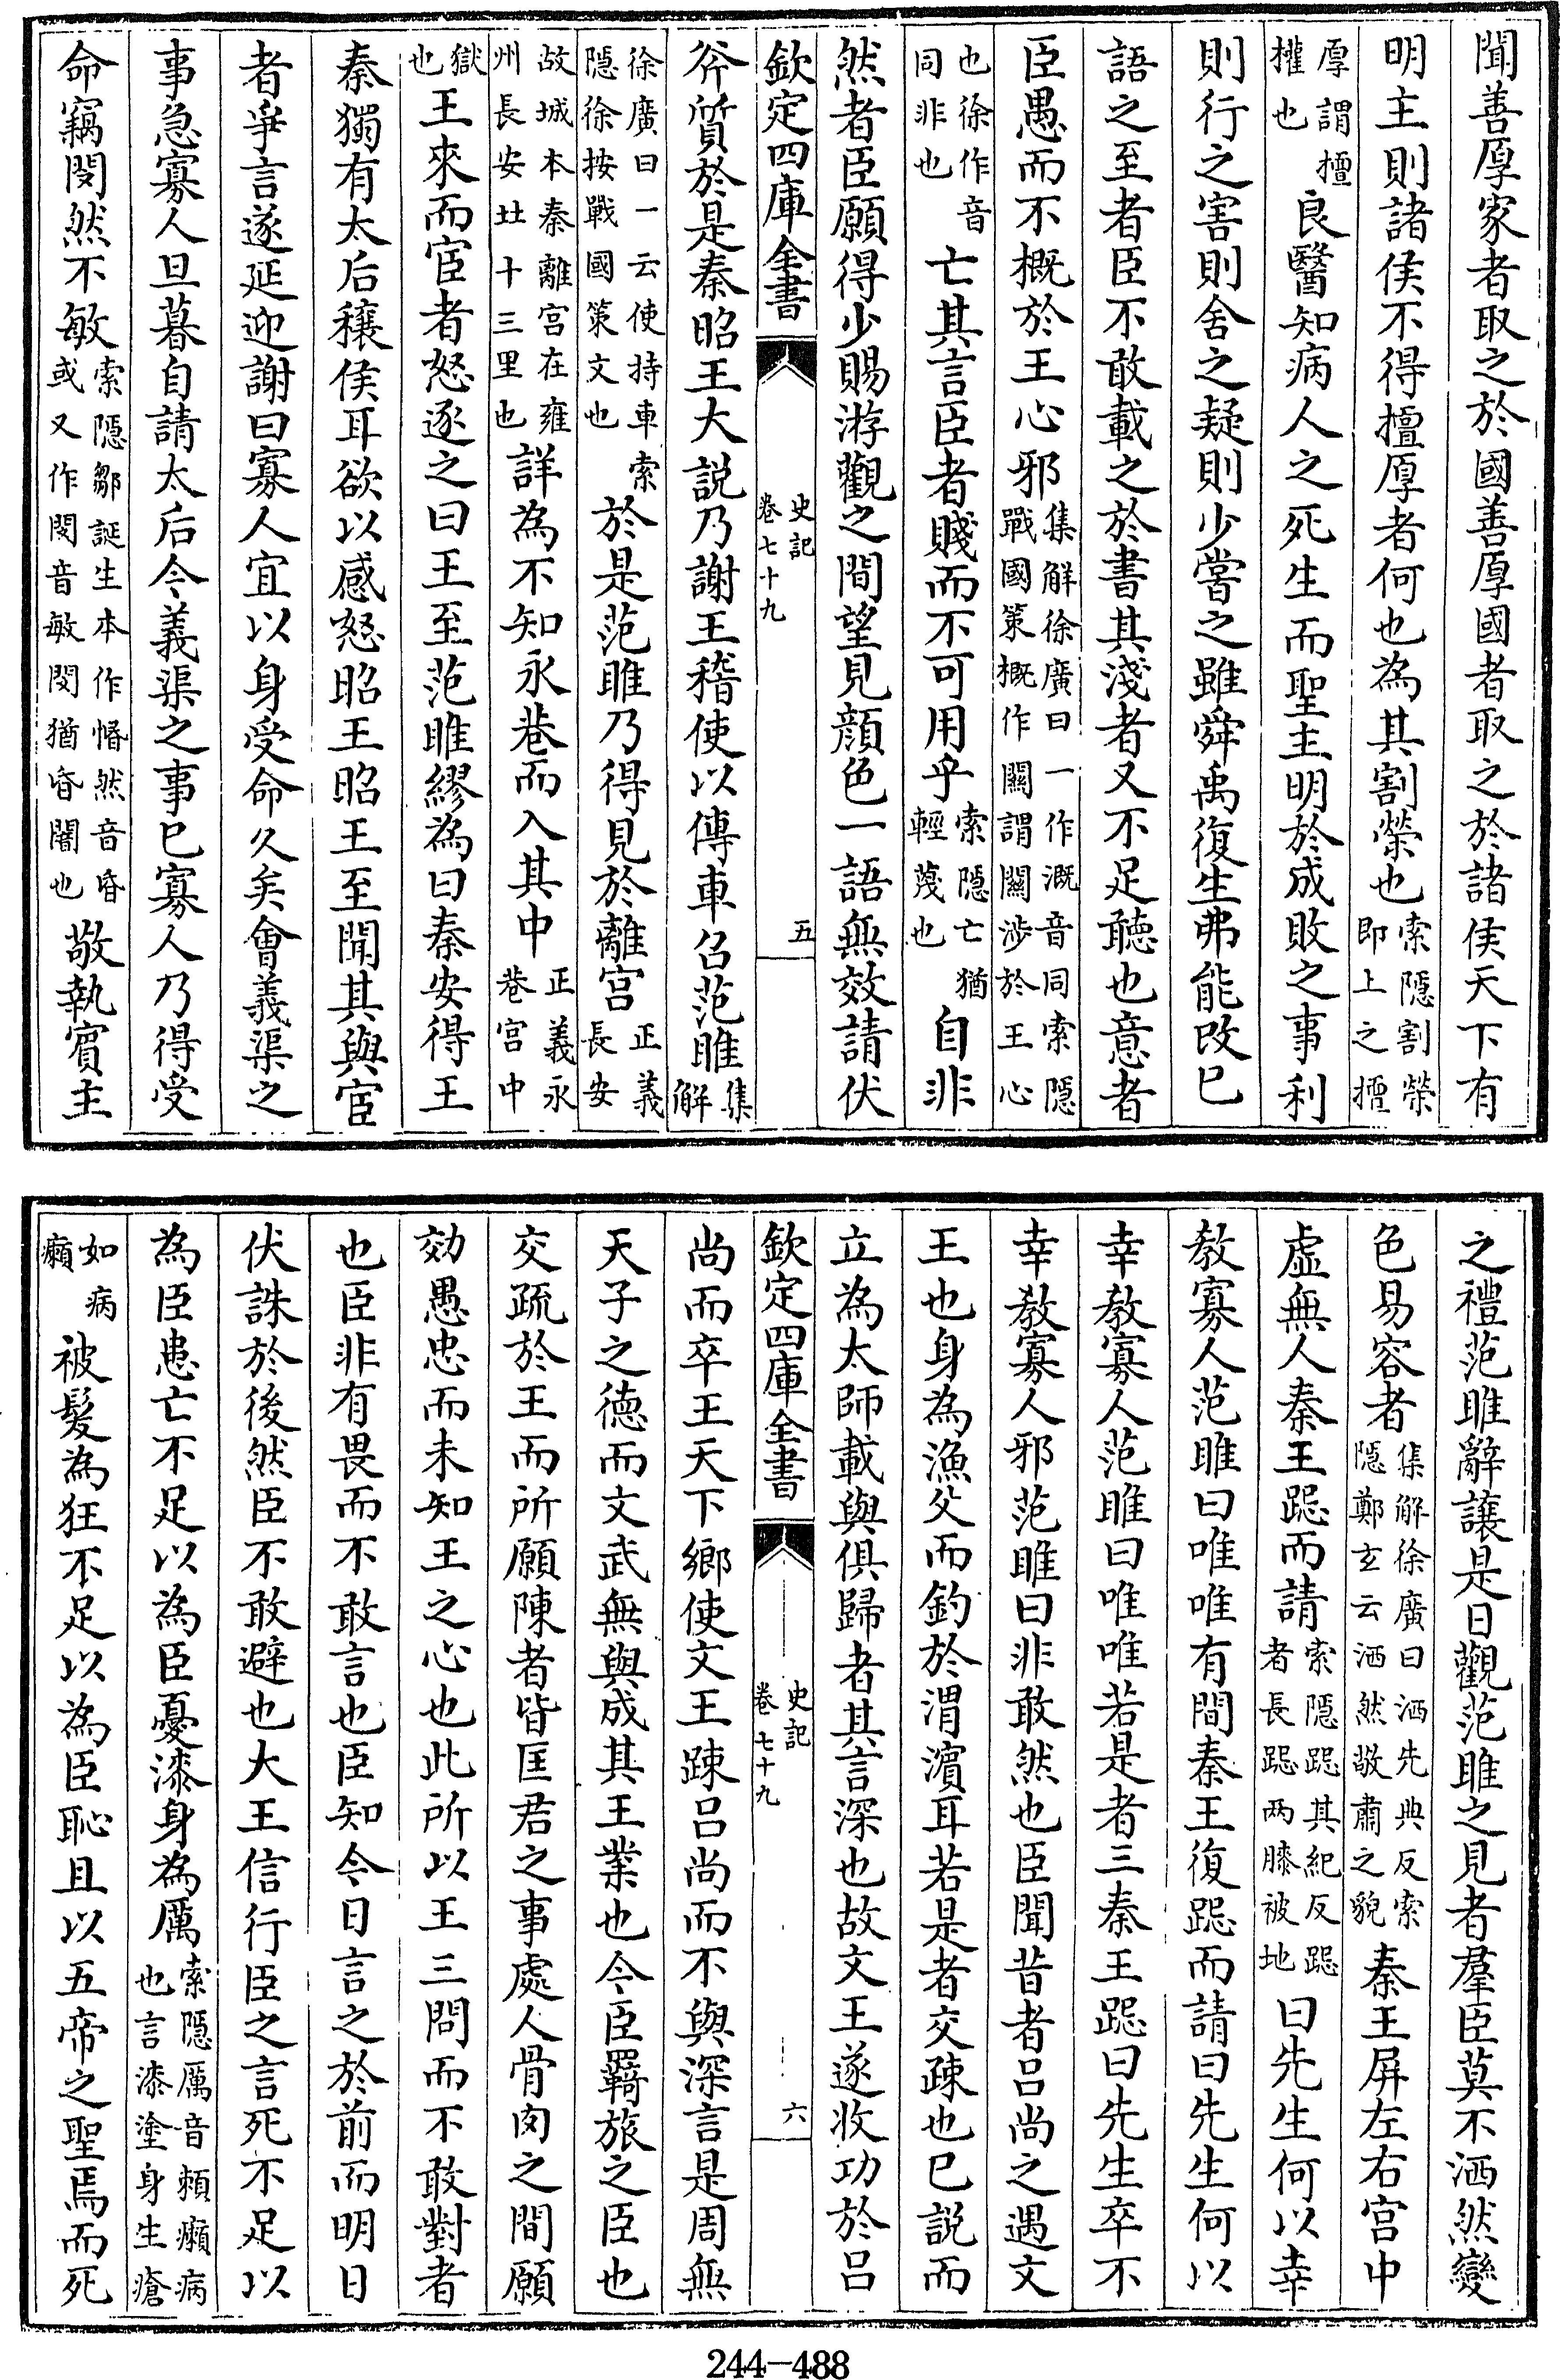 聞善厚家者取之於國善厚國者取之於諸侯天下有
明主則諸侯不得擅厚者何也為其割榮也索隱割榮即上之擅
厚謂擅權也良醫知病人之死生而聖主明於成敗之事利
則行之害則舍之疑則少嘗之雖舜禹復生弗能改已
語之至者臣不敢載之於書其淺者又不足聽也意者
臣愚而不概於王心邪集解徐廣曰一作溉音同索隱戰國策概作關謂關涉於王心
也徐作音同非也亡其言臣者賤而不可用乎索隱亡猶輕蔑也自非
然者臣願得少賜游觀之間望見顔色一語無效請伏
欽定四庫全書
史記卷七十九
五
斧質於是秦昭王大說乃謝王稽使以傳車召范睢集解
徐廣曰一云使持車索隱徐按戰國策文也於是范睢乃得見於離宮正義長安
故城本秦離宮在雍州長安北十三里也詳為不知永巷而入其中正義永巷宮中
獄也王來而宦者怒逐之曰王至范睢繆為曰秦安得王
秦獨有太后穰侯耳欲以感怒昭王昭王至聞其與宦
者爭言遂延迎謝曰寡人宜以身受命久矣會義渠之
事急寡人旦暮自請太后今義渠之事已寡人乃得受
命竊閔然不敏索隱鄒誕生本作惛然音昏或又作閔音敏閔猶昏闇也敬執賓主
之禮范睢辭讓是日觀范睢之見者羣臣莫不洒然變
色易容者集解徐廣曰洒先典反索隱鄭玄云洒然敬肅之貌秦王屏左右宮中
虛無人秦王跽而請索隱跽其紀反跽者長跽两膝被地曰先生何以幸
教寡人范睢曰唯唯有間秦王復跽而請曰先生何以
幸教寡人范睢曰唯唯若是者三秦王跽曰先生卒不
幸教寡人邪范睢曰非敢然也臣聞昔者呂尚之遇文
王也身為漁父而釣於渭濵耳若是者交疎也已説而
立為太師載與俱歸者其言深也故文王遂收功於呂
欽定四庫全書
史記卷七十九
六
尚而卒王天下鄉使文王疎呂尚而不與深言是周無
天子之德而文武無與成其王業也今臣羇旅之臣也
交疏於王而所願陳者皆匡君之事處人骨肉之間願
効愚忠而未知王之心也此所以王三問而不敢對者
也臣非有畏而不敢言也臣知今日言之於前而明日
伏誅於後然臣不敢避也大王信行臣之言死不足以
為臣患亡不足以為臣憂漆身為厲索隱厲音賴癩病也言漆塗身生瘡
如病癩被髮為狂不足以為臣恥且以五帝之聖焉而死
244-488